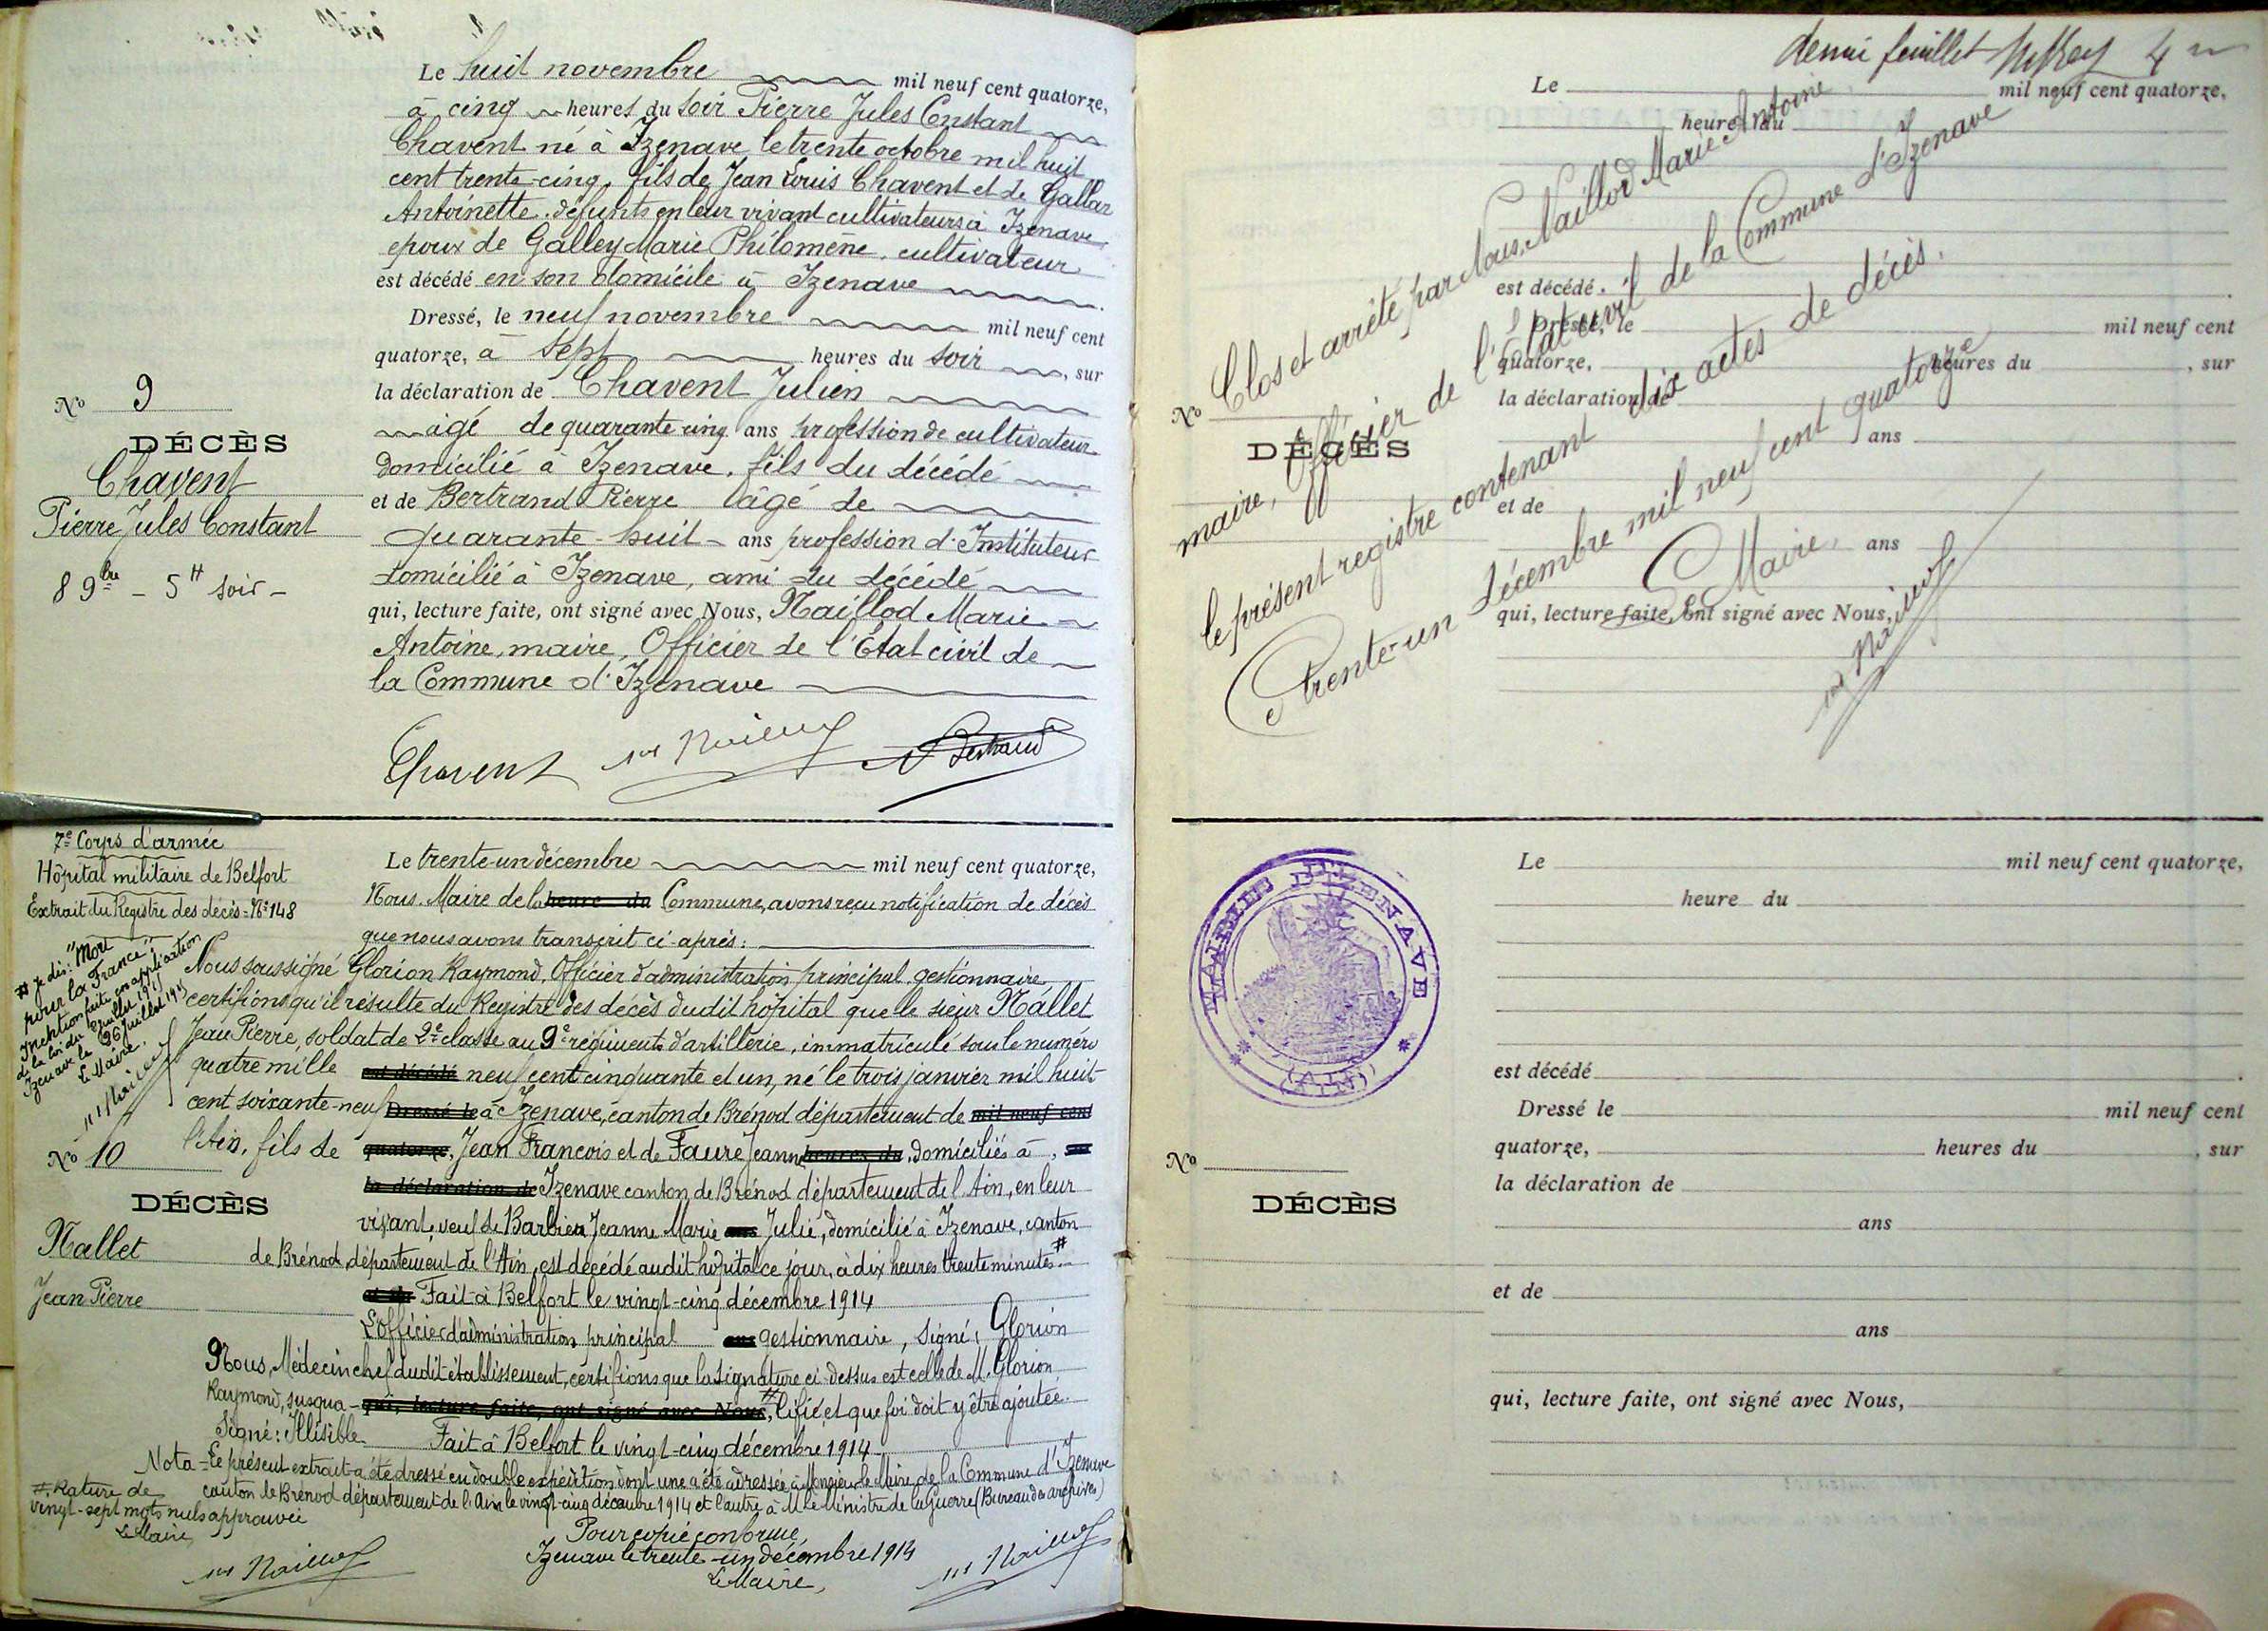 Le huit novembre mil neuf cent quatorze,
à cinq heures du soir Pierre Jules Constant
Chavent né à Izenave le trente octobre mil huit
cent trente-cinq, fils de Jean Louis Chavent et de Gallar
Antoinette. défunts en leur vivant cultivateurs à Izenave
époux de Galley Marie Philomène, cultivateur
est décédé en son domicile à Izenave
Dressé, le neuf novembre mil neuf cent
quatorze, à sept heures du soir, sur
la déclaration de Chavent Julien
âgé de quarante cinq ans profession de cultivateur
domicilié à Izenave, fils du décédé
et de Bertrand Pierre âgé de
quarante-huit ans profession d'Instituteur
domicilié à Izenave, ami du décédé
qui, lecture faite, ont signé avec Nous, Naillod Marie
Antoine, maire, Officier de l'État civil de
la Commune d'Izenave
Chavent Bertrand
No 9
DÉCÈS
Chavent
Pierre Jules Constant
8 9bre - 5H soir -
7e Corps d'armée
Hôpital militaire de Belfort
Extrait du Registre des décès = No 148
# Je dis: "Mort
pour la France"
Mention faite en application
de la loi du 2 Juillet 1915
Izenave le 26 Juillet 1915
Le Maire.
Le trente-un décembre mil neuf cent quatorze,
Nous. Maire de la heure du Commune, avons reçu notification de décès
que nous avons transcrit ci-après:
Nous soussigné Glorion Raymond, Officier d'administration principal gestionnaire
certifions qu'il résulte du Registre des décès dudit hôpital que le sieur Nallet
Jean Pierre, soldat de 2e classe au 9e régiment d'artillerie, immatriculé sous le numéro
quatre mille est décédé neuf cent cinquante et un, né le trois janvier mil huit
cent soixante-neuf Dressé le à Izenave, canton de Brénod département de mil neuf cent
l'Ain, fils de quatorze, Jean François et de Faure Jeanne heures du, domiciliés à, sur
la déclaration de Izenave canton de Brénod département de l'Ain, en leur
vivant, veuf de Barbier Jeanne Marie ans Julie, domicilié à Izenave, canton
de Brénod, département de l'Ain, est décédé audit hôpital ce jour, à dix heures trente minutes #
et de Fait à Belfort le vingt-cinq décembre 1914
L'officier d'administration principal ans gestionnaire, signé: Glorion
Nous, Médecin chef dudit établissement, certifions que la signature ci-dessus est celle de M. Glorion
Raymond, susqua- qui, lecture faite, ont signé avec Nous, # lifié, et que foi doit y être ajoutée.
Signé: Illisible Fait à Belfort le vingt-cinq décembre 1914
Nota = Le présent extrait a été dressé en double expédition dont une a été adressée à Monsieur le Maire de la Commune d'Izenave
canton de Brénod département de l'Ain le vingt-cinq décembre 1914 et l'autre à M. le Ministre de la Guerre (Bureau des archives)
# Rature de
vingt-sept mots nuls approuvée
Le Maire
Pour copie conforme,
Izenave le trente-un décembre 1914
Le Maire,
No 10
DÉCÈS
Nallet
Jean Pierre
demi feuillet 4
Le mil neuf cent quatorze,
heure du
est décédé.
Dressé, le mil neuf cent
quatorze, heures du, sur
la déclaration de
ans
et de
ans
qui, lecture faite, ont signé avec Nous,
No
DÉCÈS
Clos et arrêté par Nous, Naillod Marie Antoine
maire, Officier de l'État civil de la Commune d'Izenave
le présent registre contenant dix actes de décès.
Trente-un décembre mil neuf cent quatorze
Le Maire,
MAIRIE D'IZENAVE
(AIN)
Le mil neuf cent quatorze,
heure du
est décédé
Dressé le mil neuf cent
quatorze, heures du, sur
la déclaration de
ans
et de
ans
qui, lecture faite, ont signé avec Nous,
No
DÉCÈS